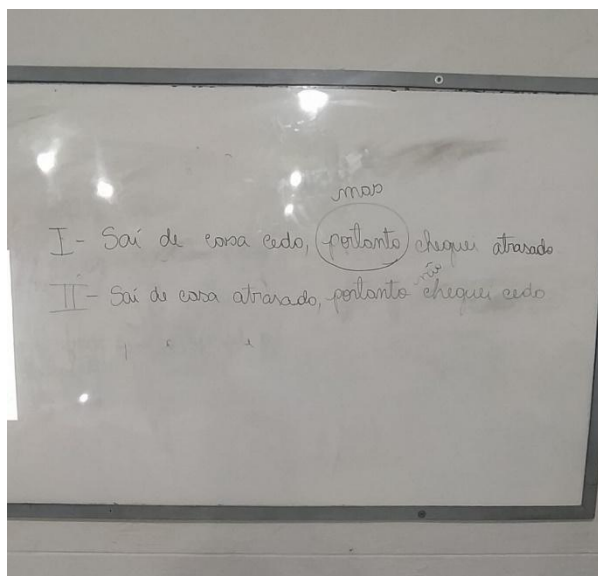 mas
I - Saí de casa cedo, portanto cheguei atrasado
não
II - Saí de casa atrasado, portanto cheguei cedo